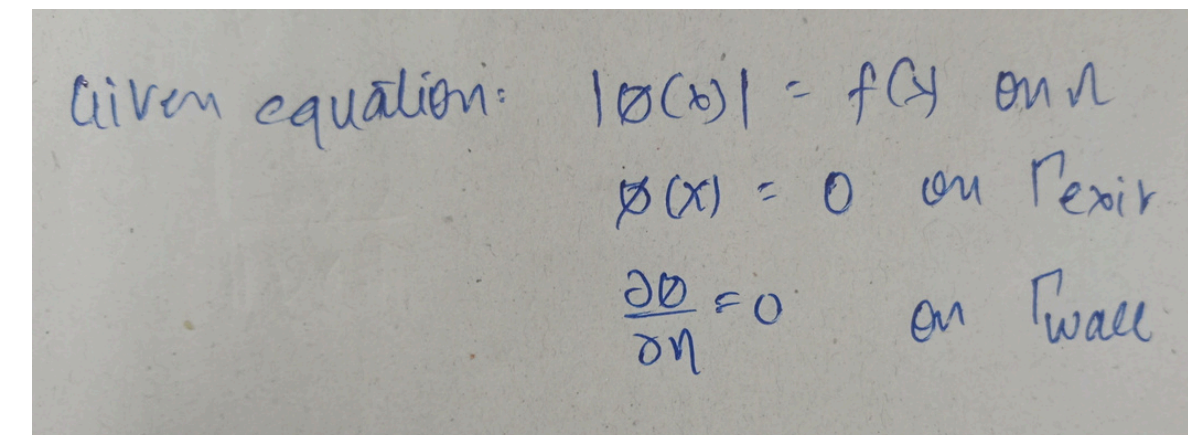 Given equation: |ø(x)| = f(x) on Ω
ø(x) = 0 on Γexit
∂ø/∂η = 0 on Γwall